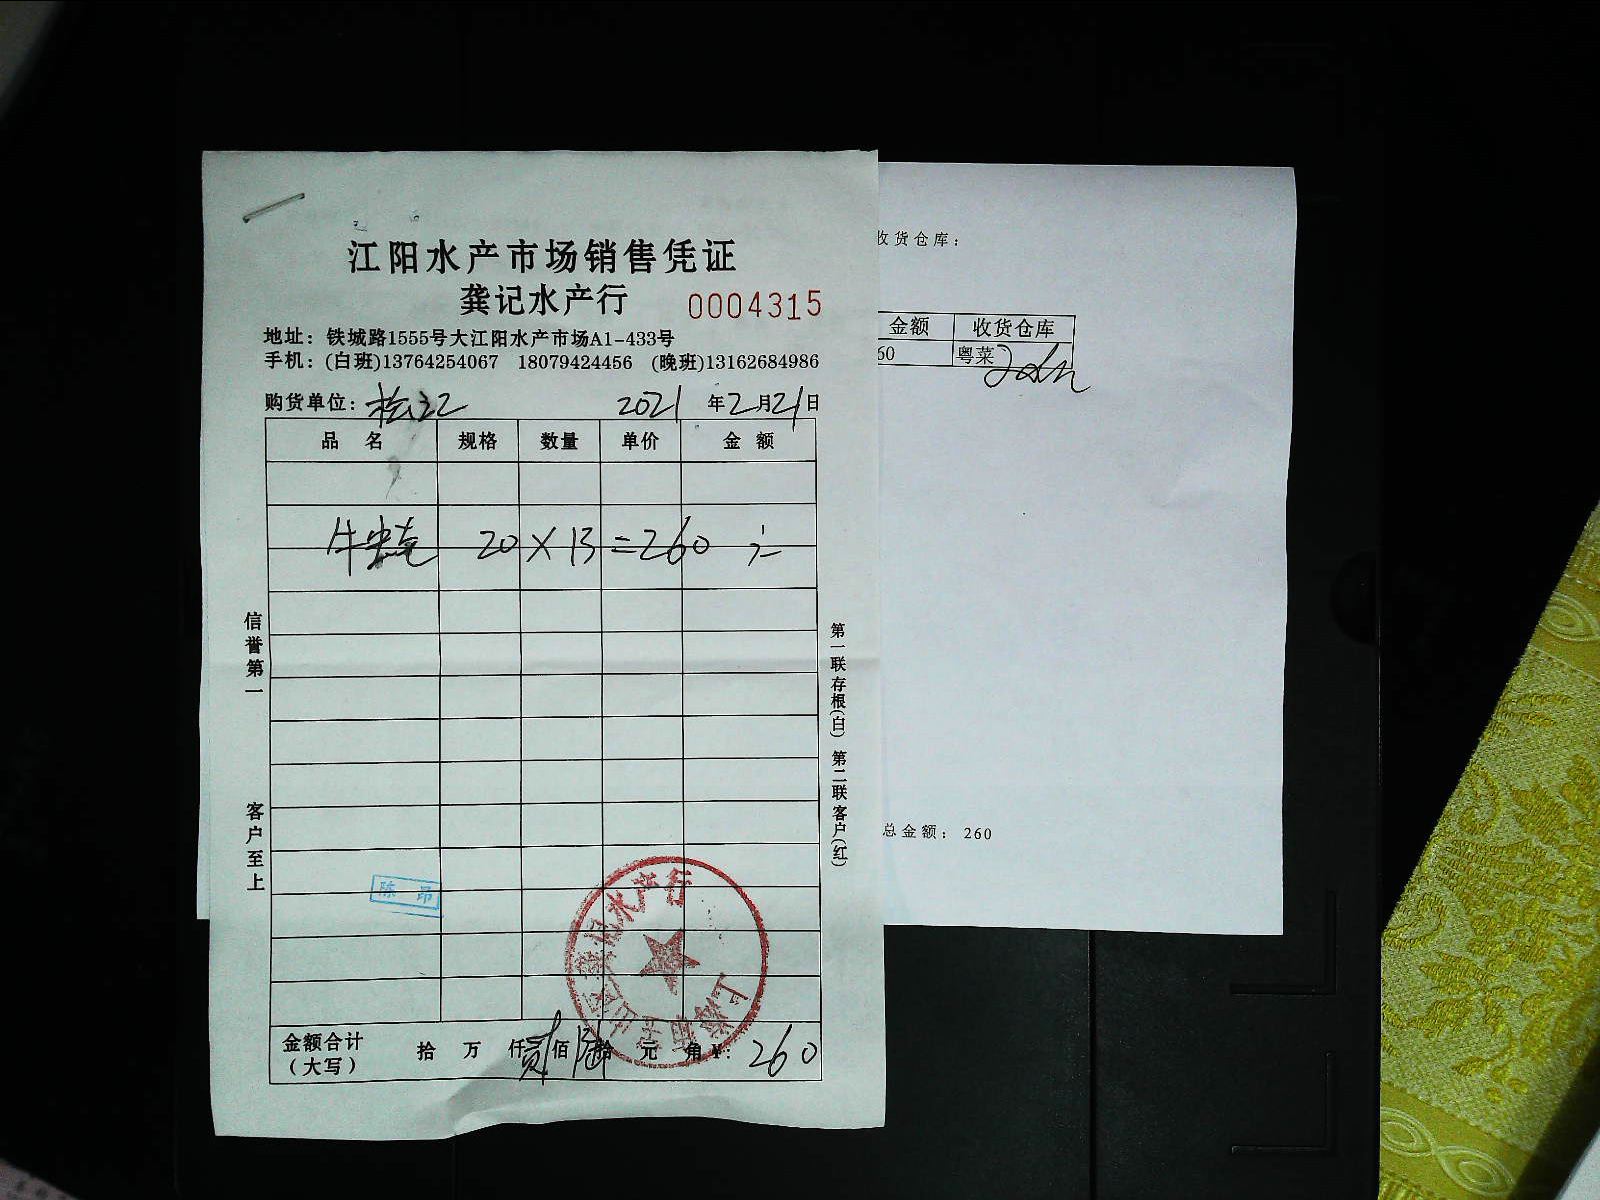 江阳水产市场销售凭证
龚记水产行 0004315
地址：铁城路1555号大江阳水产市场A1-433号
手机：(白班)13764254067 18079424456 (晚班)13162684986
购货单位：松江 2021年2月21日
品名 规格 数量 单价 金额
20×13=260
信誉第一 客户至上
第一联存根(白) 第二联客户(红)
陈昂
龚记水产行
金额合计 拾万仟贰佰陆拾元角¥：260
（大写）
收货仓库：
金额 收货仓库
60 粤菜
总金额：260